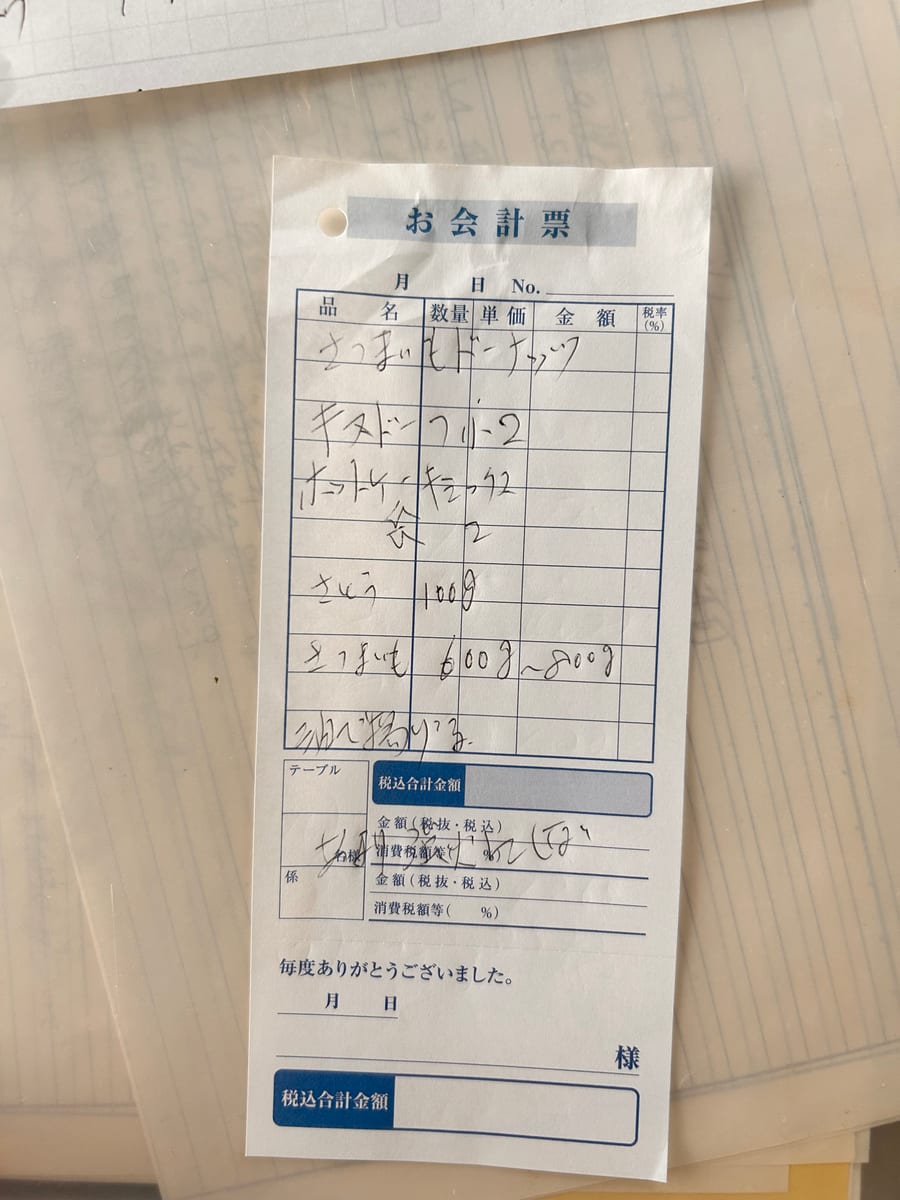 お会計票
月 日 No.
品名 数量 単価 金額 税率(%)
さつまいもドーナッツ
キヌドーフ 小-2
ホットケーキミックス
袋 2
さとう 100g
さつまいも 600g~800g
油で揚げる
テーブル
税込合計金額
金額(税抜・税込)
名様
消費税額等( %)
係
金額(税抜・税込)
消費税額等( %)
毎度ありがとうございました。
月 日
様
税込合計金額